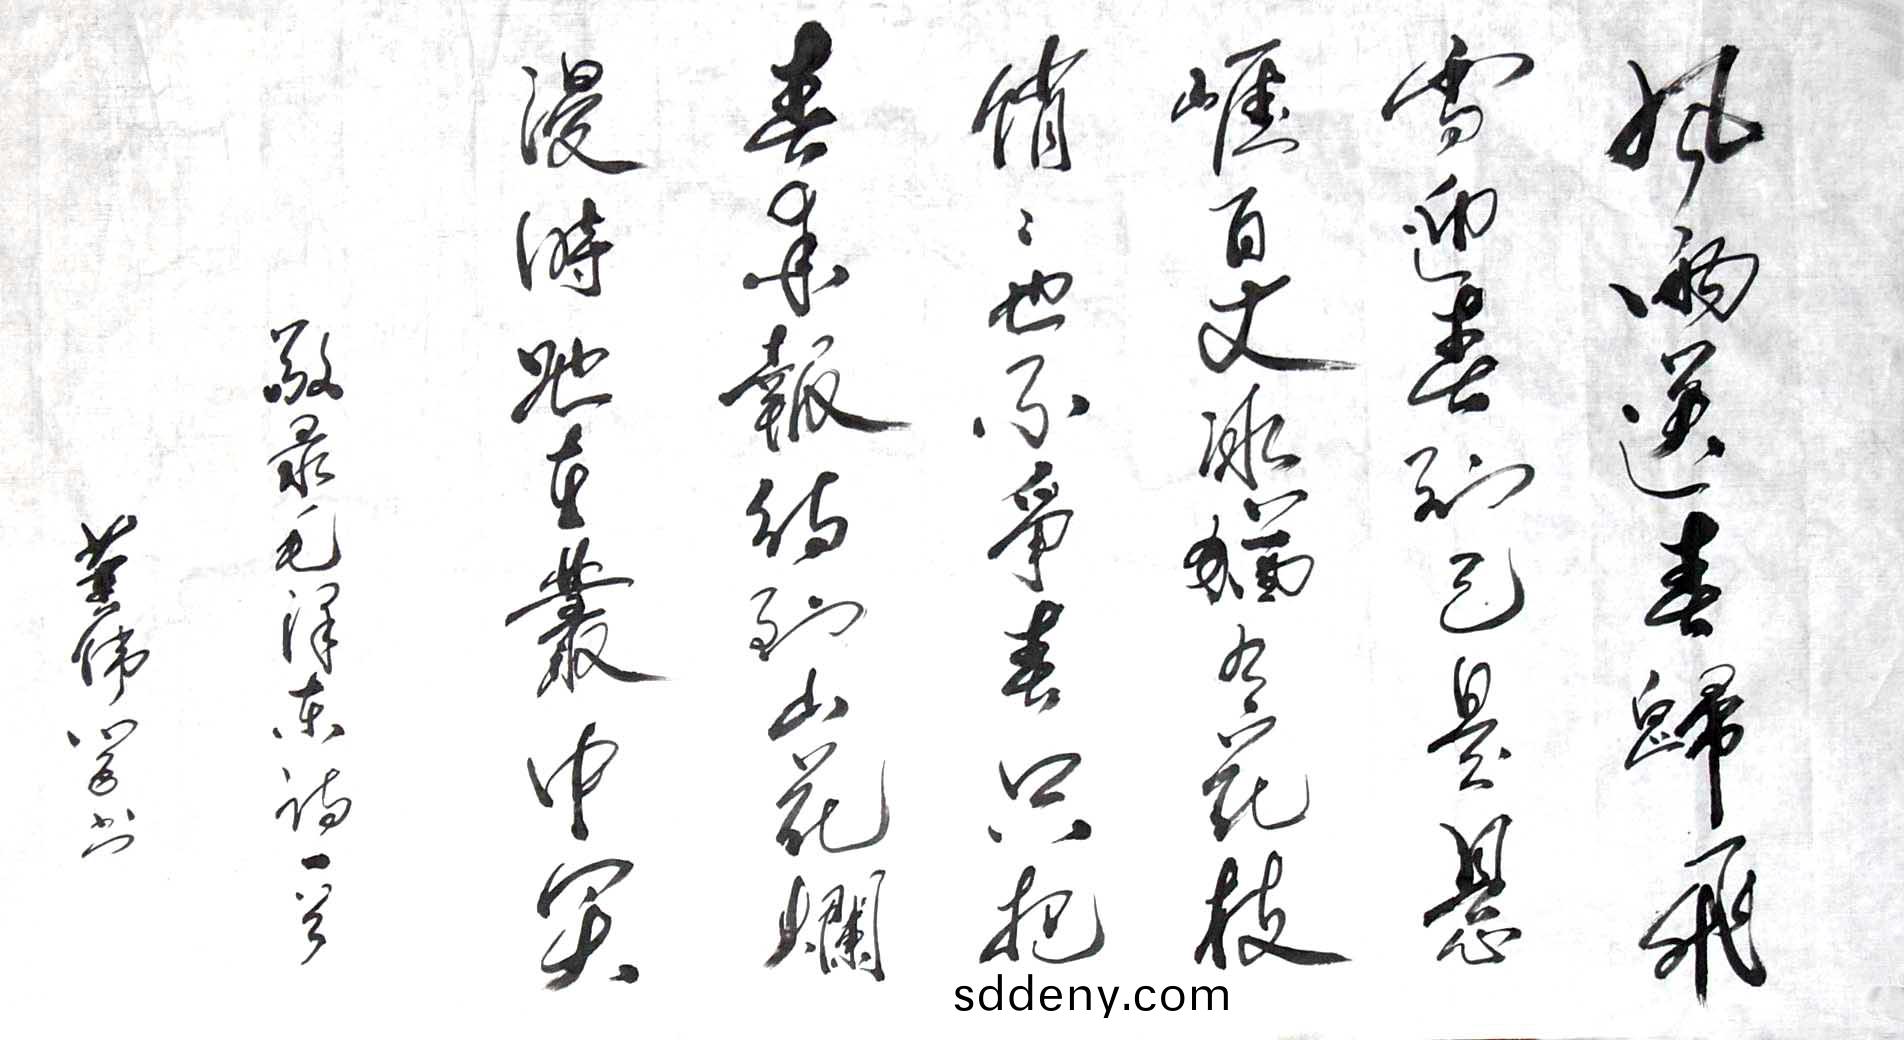 風雨送春歸飛
雪迎春到已是悬
崖百丈冰猶有花枝
俏〻也不爭春只把
春来報待到山花爛
漫時她在叢中笑
敬录毛泽东诗一首
书
sddeny.com